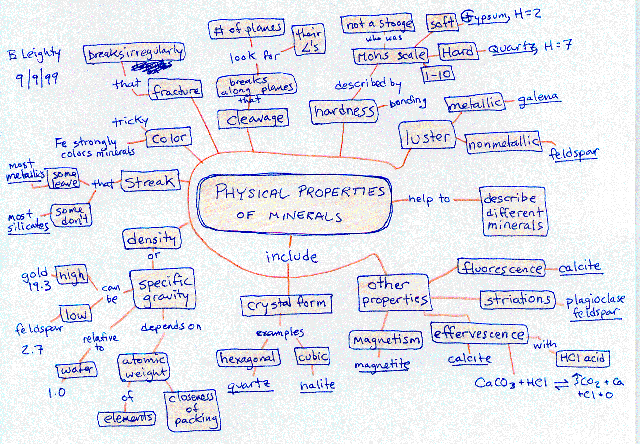 B Leighty
9/9/99
# of planes
their
∠'s
look for
breaks
along planes
that
cleavage
breaks irregularly
that
fracture
not a stooge
who was
Mohs scale
soft
Gypsum, H=2
Hard
Quartz, H=7
1-10
described by
hardness
bonding
metallic
galena
luster
nonmetallic
feldspar
tricky
color
Fe strongly
colors minerals
most
metallics
some
leave
that
streak
most
silicates
some
don't
PHYSICAL PROPERTIES
OF MINERALS
help to
describe
different
minerals
include
density
or
specific
gravity
can
be
high
gold
19.3
low
feldspar
2.7
relative
to
water
1.0
depends on
atomic
weight
of
elements
closeness
of
packing
crystal form
examples
hexagonal
quartz
cubic
halite
other
properties
fluorescence
calcite
striations
plagioclase
feldspar
magnetism
magnetite
effervescence
calcite
with
HCl acid
CaCO₃ + HCl ⇌ ↑CO₂ + Ca
+Cl + O